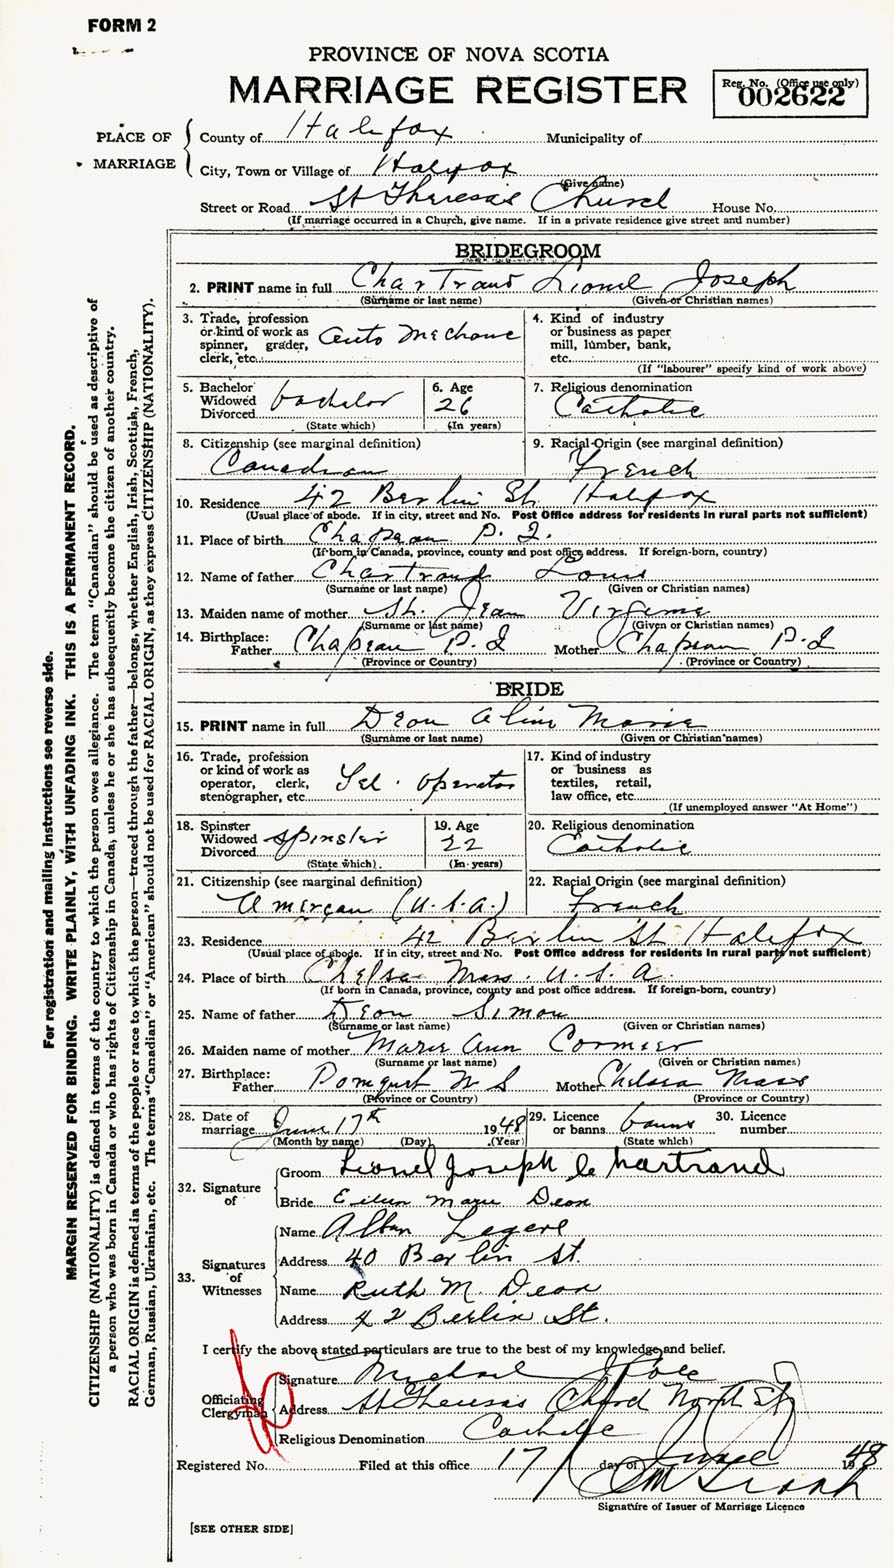 FORM 2
PROVINCE OF NOVA SCOTIA
MARRIAGE REGISTER
Reg. No. (Office use only)
002622
PLACE OF MARRIAGE
County of Halifax Municipality of
City, Town or Village of Halifax
(Give name)
Street or Road St Theresa's Church House No.
(If marriage occurred in a Church, give name. If in a private residence give street and number)
BRIDEGROOM
2. PRINT name in full Chartrand Lionel Joseph
(Surname or last name) (Given or Christian names)
3. Trade, profession or kind of work as spinner, grader, clerk, etc. Auto Mechanic
4. Kind of industry or business as paper mill, lumber, bank, etc.
(If "labourer" specify kind of work above)
5. Bachelor Widowed Divorced bachelor
(State which)
6. Age 26
(In years)
7. Religious denomination
Catholic
8. Citizenship (see marginal definition)
Canadian
9. Racial Origin (see marginal definition)
French
10. Residence 42 Berlin St. Halifax
(Usual place of abode. If in city, street and No. Post Office address for residents in rural parts not sufficient)
11. Place of birth Chapeau P. Q.
(If born in Canada, province, county and post office address. If foreign-born, country)
12. Name of father Chartrand Louis
(Surname or last name) (Given or Christian names)
13. Maiden name of mother St. Jean Virginie
(Surname or last name) (Given or Christian names)
14. Birthplace: Father Chapeau P. Q Mother Chapeau P. Q
(Province or Country) (Province or Country)
BRIDE
15. PRINT name in full Deon Aline Marie
(Surname or last name) (Given or Christian names)
16. Trade, profession or kind of work as operator, clerk, stenographer, etc. Tel. operator
17. Kind of industry or business as textiles, retail, law office, etc.
(If unemployed answer "At Home")
18. Spinster Widowed Divorced spinster
(State which)
19. Age 22
(In years)
20. Religious denomination
Catholic
21. Citizenship (see marginal definition)
Amercan (U.S.A.)
22. Racial Origin (see marginal definition)
French
23. Residence 42 Berlin St Halifax
(Usual place of abode. If in city, street and No. Post Office address for residents in rural parts not sufficient)
24. Place of birth Chelsea Mass. U.S.A.
(If born in Canada, province, county and post office address. If foreign-born, country)
25. Name of father Deon Simon
(Surname or last name) (Given or Christian names)
26. Maiden name of mother Marie Ann Cormier
(Surname or last name) (Given or Christian names)
27. Birthplace: Father Pomquet N S Mother Chelsea Mass
(Province or Country) (Province or Country)
28. Date of marriage June 17th 1948
(Month by name) (Day) (Year)
29. Licence or banns banns
(State which)
30. Licence number
32. Signature of
Groom Lionel Joseph Chartrand
Bride Eileen Marie Deon
33. Signatures of Witnesses
Name Alban Legere
Address 40 Berlin St.
Name Ruth M. Deon
Address 42 Berlin St.
I certify the above stated particulars are true to the best of my knowledge and belief.
Officiating Clergyman
Signature Michael
Address St Theresas Church North St
Religious Denomination Catholic
Registered No. Filed at this office 17 day of June 1948
Signature of Issuer of Marriage Licence
[SEE OTHER SIDE]
For registration and mailing instructions see reverse side.
MARGIN RESERVED FOR BINDING. WRITE PLAINLY, WITH UNFADING INK. THIS IS A PERMANENT RECORD.
CITIZENSHIP (NATIONALITY) is defined in terms of the country to which the person owes allegiance. The term "Canadian" should be used as descriptive of
a person who was born in Canada or who has rights of Citizenship in Canada, unless he or she has subsequently become the citizen of another country.
RACIAL ORIGIN is defined in terms of the people or race to which the person—traced through the father—belongs, whether English, Irish, Scottish, French,
German, Russian, Ukrainian, etc. The terms "Canadian" or "American" should not be used for RACIAL ORIGIN, as they express CITIZENSHIP (NATIONALITY).